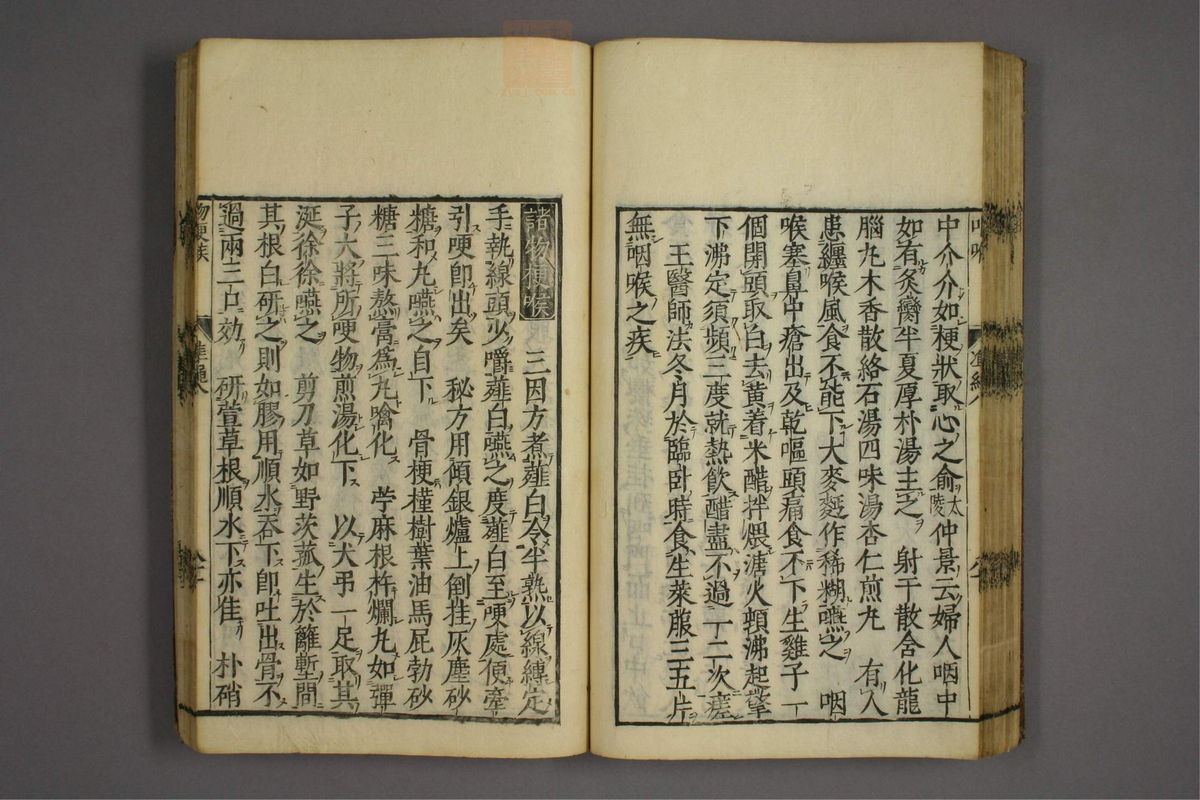 中介介如梗狀取心之俞太陵仲景云婦人咽中
如有炙臠半夏厚朴湯主之　射干散含化龍
腦丸木香散絡石湯四味湯杏仁煎丸　有人
患纏喉風食不能下大麥麪作稀糊嚥之　咽
喉塞鼻中瘡出及乾嘔頭痛食不下生雞子一
個開頭取白去黃着米醋拌煨溏火頓沸起擎
下沸定須頻三度就熱飲醋盡不過一二次瘥
王醫師法冬月於臨臥時食生萊菔三五片
無咽喉之疾
諸物梗喉　三因方煮薤白令半熟以線縛定
手執線頭少嚼薤白嚥之度薤白至哽處便牽
引哽即出矣　秘方用傾銀爐上倒挂灰塵砂
糖和丸嚥之自下　骨梗槿樹葉油馬屁勃砂
糖三味熬膏為丸噙化　苧麻根杵爛丸如彈
子大將所哽物煎湯化下　以犬弔一足取其
涎徐徐嚥之　剪刀草如野茨菰生於籬塹間
其根白研之則如膠用順水吞下即吐出骨不
過兩三口効　研萱草根順水下亦佳　朴硝